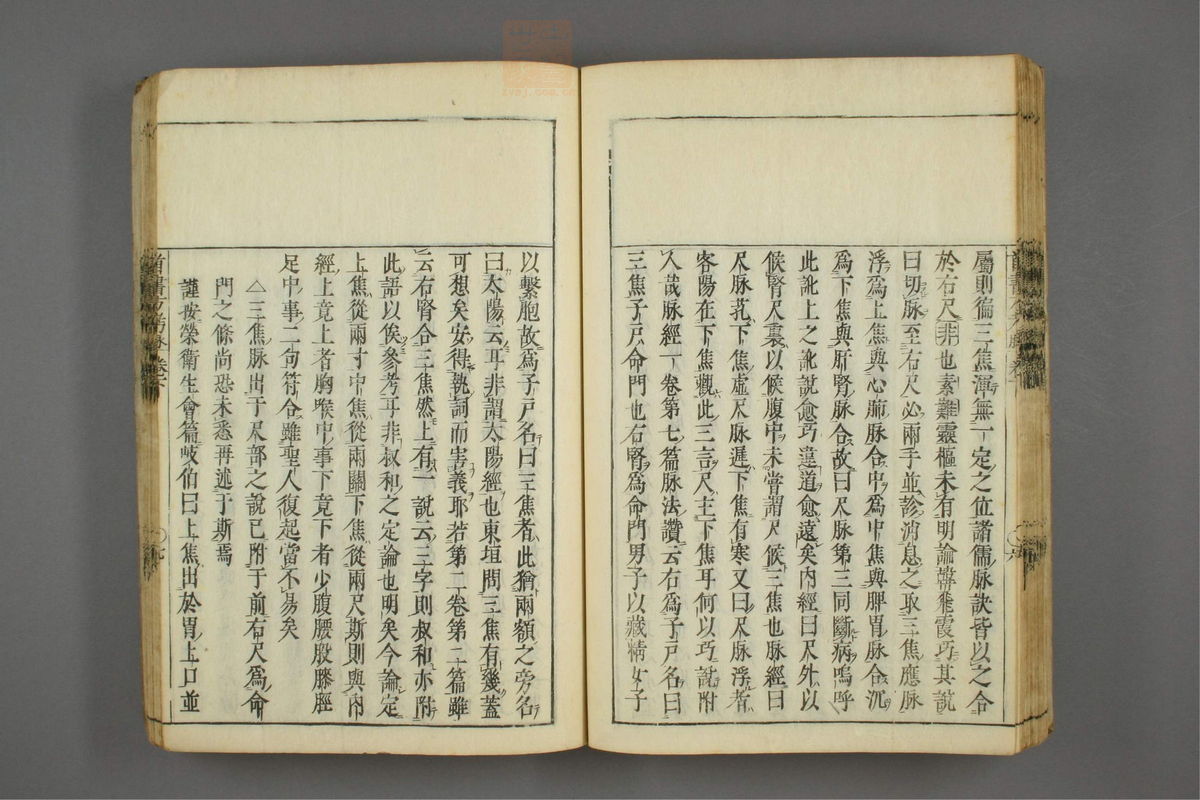 屬則徧三焦渾無一定之位諸儒脉訣皆以之合
於右尺非也素難靈樞未有明論韓飛霞巧其說
曰切脉至右尺必兩手並診消息之取三焦應脉
浮爲上焦與心肺脉合中爲中焦與脾胃脉合沉
爲下焦與肝腎脉合故曰尺脉第三同斷病嗚呼
此訛上之訛說愈巧違道愈遠矣內經曰尺外以
候腎尺裏以候腹中未嘗謂尺候三焦也脉經曰
尺脉芤下焦虛尺脉遲下焦有寒又曰尺脉浮者
客陽在下焦觀此三言尺主下焦耳何以巧說附
入哉脉經一卷第七篇脉法讚云右爲子戸名曰
三焦子戸命門也右腎爲命門男子以藏精女子
以繫胞故爲子戸名曰三焦者此猶兩額之旁名
曰太陽云耳非謂太陽經也東垣問三焦有幾蓋
可想矣安得執詞而害義耶若第二卷第二篇雖
云右腎合三焦然上有一說云三字則叔和亦附
此語以俟參考耳非叔和之定論也明矣今論定
上焦從兩寸中焦從兩關下焦從兩尺斯則與內
經上竟上者胸喉中事下竟下者少腹腰股膝脛
足中事二句符合雖聖人復起當不易矣
△三焦脉出于尺部之說已附于前右尺爲命
門之條尚恐未悉再述于斯焉
謹按榮衛生會篇岐伯曰上焦出於胃上口並